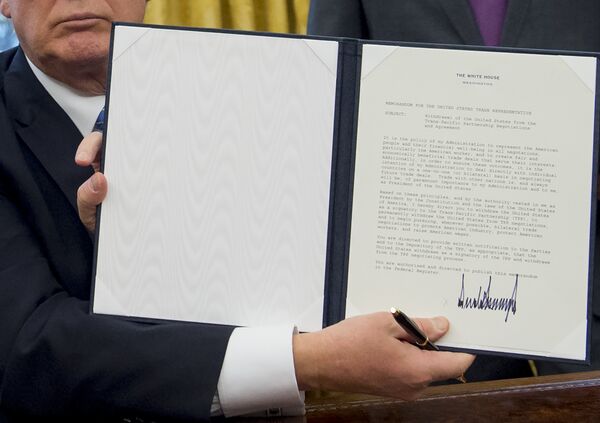 THE WHITE HOUSE
WASHINGTON
MEMORANDUM FOR THE UNITED STATES TRADE REPRESENTATIVE
SUBJECT: Withdrawal of the United States from the
Trans-Pacific Partnership Negotiations
and Agreement
It is the policy of my Administration to represent the American
people and their financial well-being in all negotiations,
particularly the American worker, and to create fair and
economically beneficial trade deals that serve their interests.
Additionally, in order to ensure these outcomes, it is the
intention of my Administration to deal directly with individual
countries on a one-on-one (or bilateral) basis in negotiating
future trade deals. Trade with other nations is, and always
will be, of paramount importance to my Administration and to me,
as President of the United States.
Based on these principles, and by the authority vested in me as
President by the Constitution and the laws of the United States
of America, I hereby direct you to withdraw the United States
as a signatory to the Trans-Pacific Partnership (TPP), to
permanently withdraw the United States from TPP negotiations,
and to begin pursuing, wherever possible, bilateral trade
negotiations to promote American industry, protect American
workers, and raise American wages.
You are directed to provide written notification to the Parties
and to the Depository of the TPP, as appropriate, that the
United States withdraws as a signatory of the TPP and withdraws
from the TPP negotiating process.
You are authorized and directed to publish this memorandum
in the Federal Register.